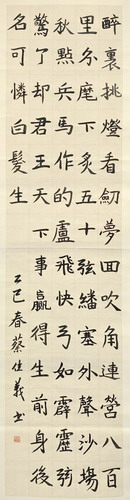 醉裏挑燈看劒夢回吹角連營八百
里分麾下炙五十弦繙塞外聲沙場
秋點兵馬作的盧飛快弓如霹靂弦
驚了却君王天下事贏得生前身後
名可憐白髮生
乙巳春蔡佳義書